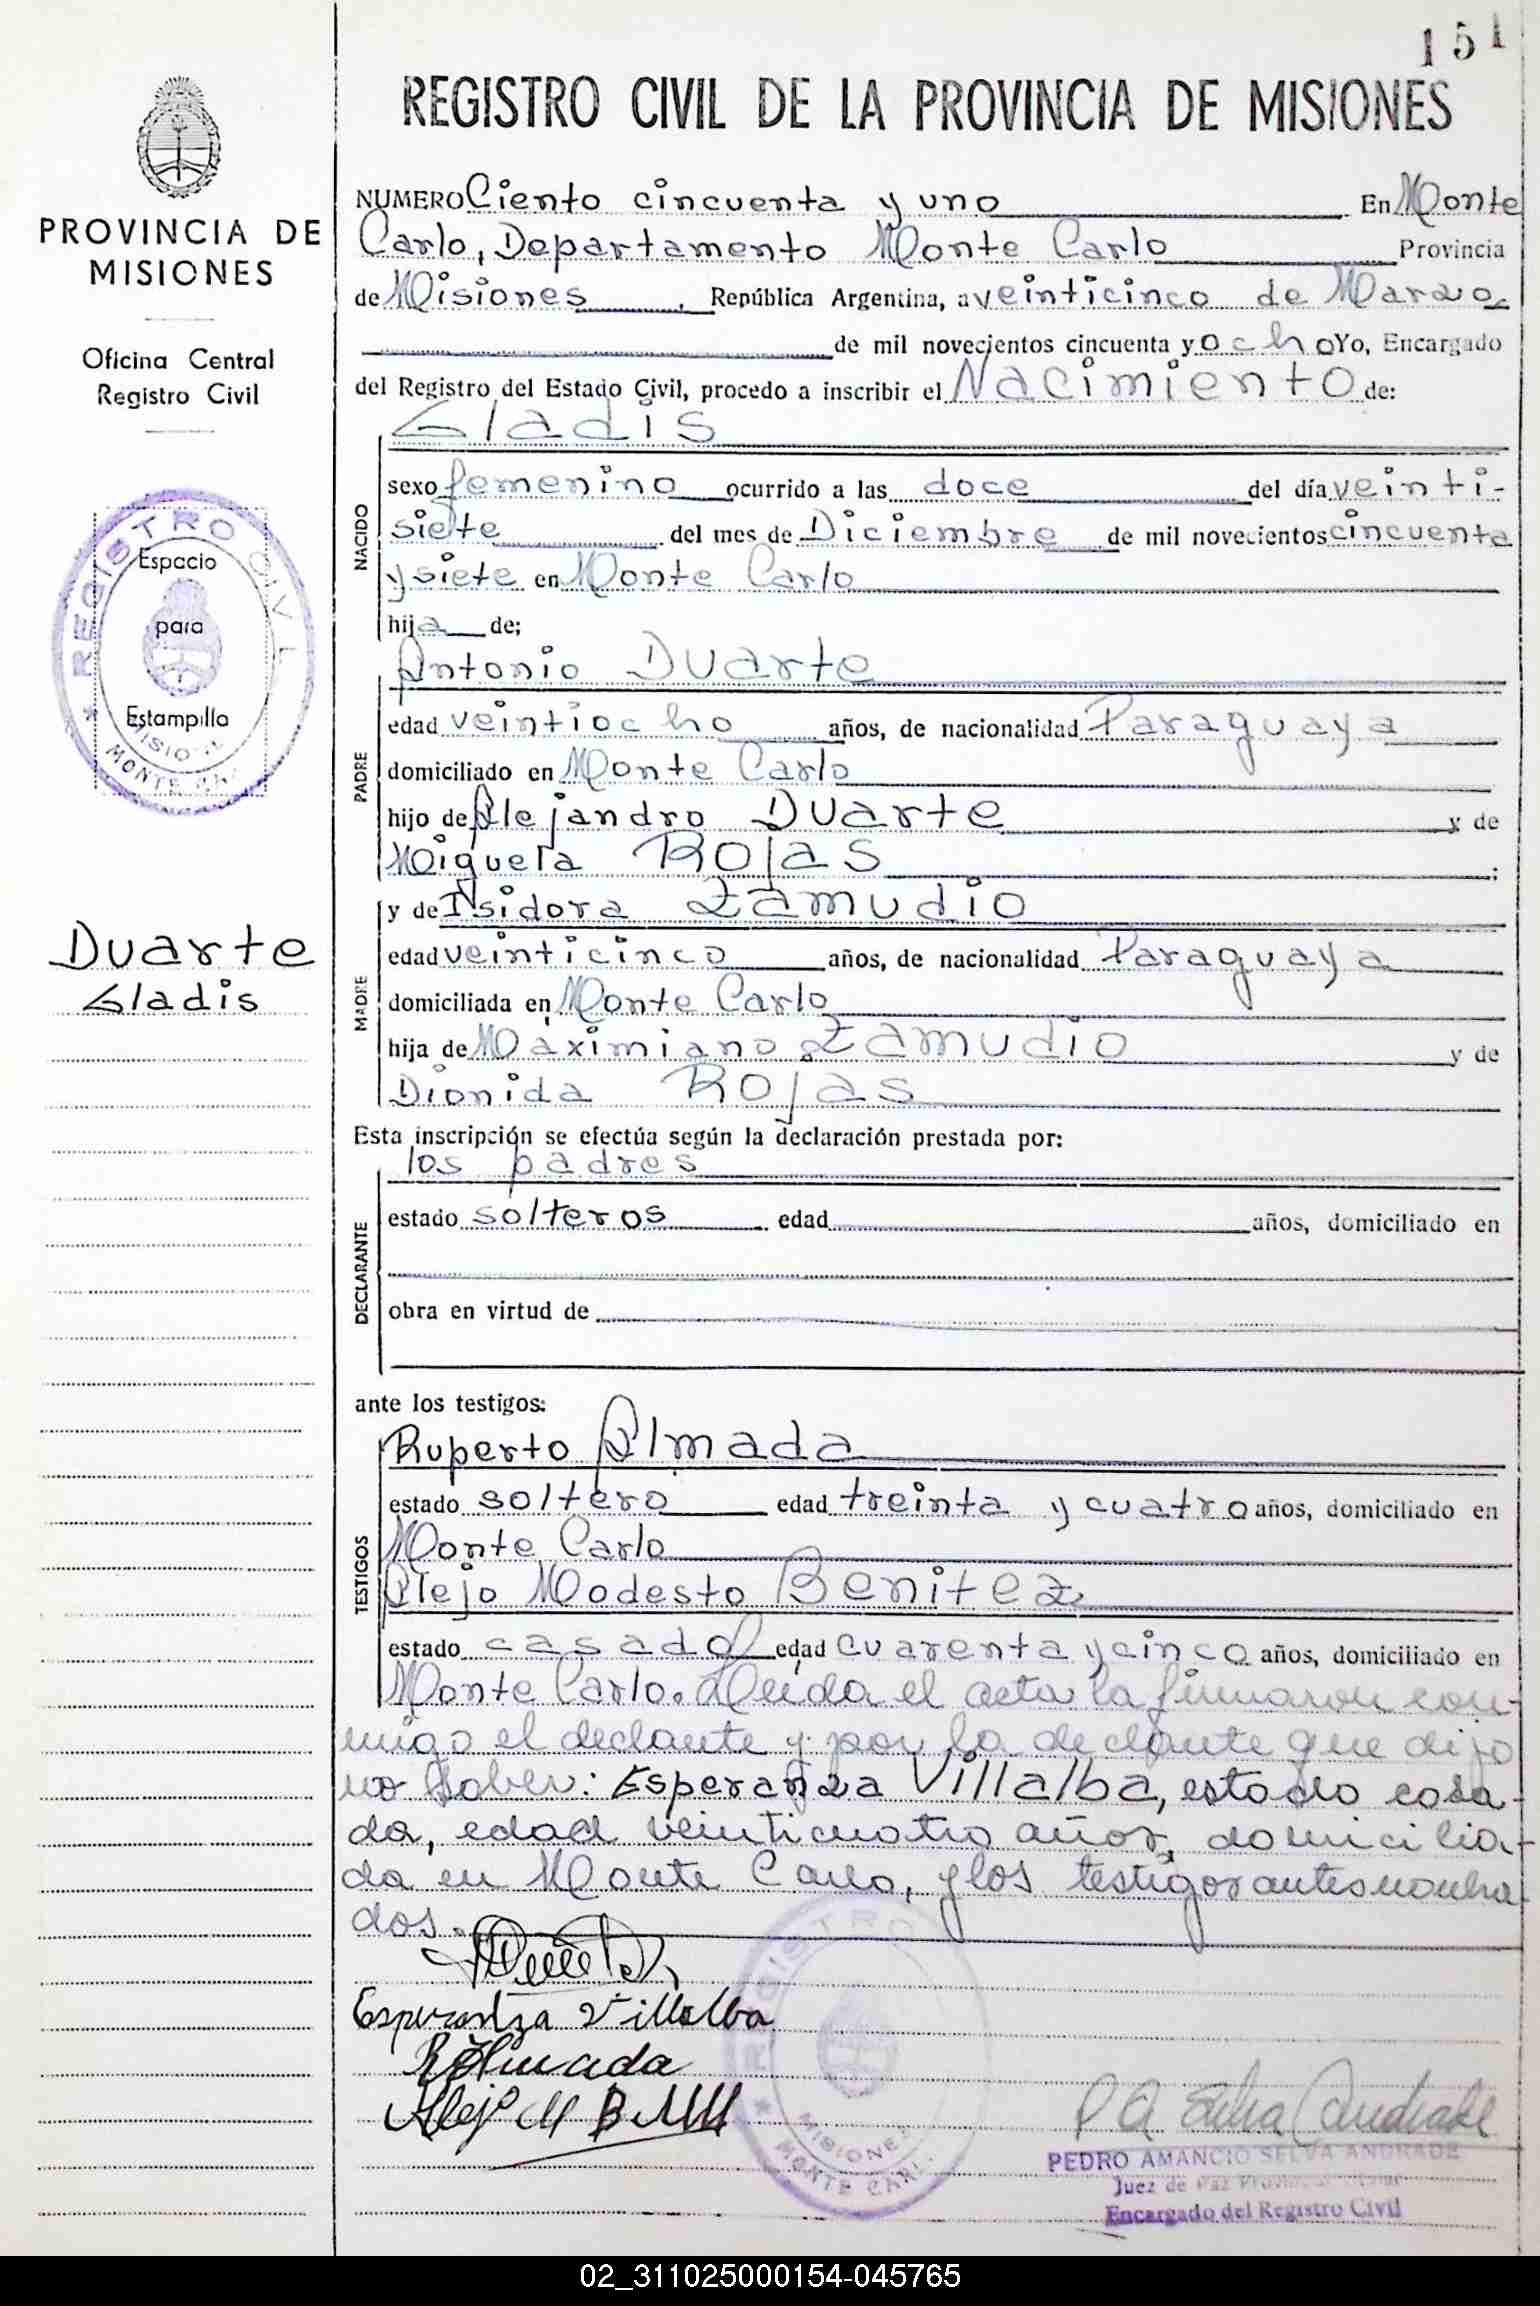 151
REGISTRO CIVIL DE LA PROVINCIA DE MISIONES
PROVINCIA DE
MISIONES
Oficina Central
Registro Civil
REGISTRO CIVIL
Espacio
para
Estampilla
MISIONES
MONTE CARLO
Duarte
Gladis
NUMERO Ciento cincuenta y uno En Monte
Carlo, Departamento Monte Carlo Provincia
de Misiones, República Argentina, a veinticinco de Marzo
de mil novecientos cincuenta y ocho Yo, Encargado
del Registro del Estado Civil, procedo a inscribir el Nacimiento de:
Gladis
NACIDO
sexo femenino ocurrido a las doce del día veinti-
siete del mes de Diciembre de mil novecientos cincuenta
y siete en Monte Carlo
hija de;
Antonio Duarte
PADRE
edad veintiocho años, de nacionalidad Paraguaya
domiciliado en Monte Carlo
hijo de Alejandro Duarte y de
Miguela Rojas ;
y de Isidora Zamudio
MADRE
edad veinticinco años, de nacionalidad Paraguaya
domiciliada en Monte Carlo
hija de Maximiano Zamudio y de
Dionida Rojas
Esta inscripción se efectúa según la declaración prestada por:
los padres
DECLARANTE
estado solteros edad años, domiciliado en
obra en virtud de
ante los testigos:
Ruperto Almada
TESTIGOS
estado soltero edad treinta y cuatro años, domiciliado en
Monte Carlo
Alejo Modesto Benitez
estado casado edad cuarenta y cinco años, domiciliado en
Monte Carlo. Leída el acta la firmaron con-
migo el declante y por la declante que dijo
no saber: Esperanza Villalba, estado casa-
da, edad veinticuatro años, domicilia-
da en Monte Carlo, y los testigos antes nombra-
dos.
Esperanza Villalba
R Almada
Alejo M B
REGISTRO
MISIONES
MONTE CARL
P A Selva Andrade
PEDRO AMANCIO SELVA ANDRADE
Juez de Paz
Encargado del Registro Civil
02_311025000154-045765